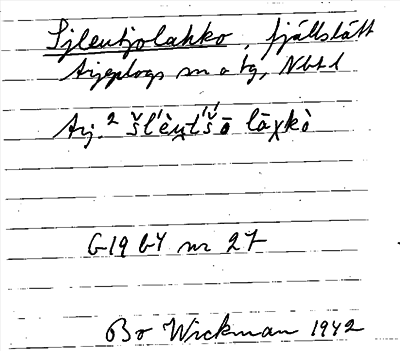 Sjleutjolakko, fjällslätt
Arjeplogs sn o tg, Nbtl
Arj.² šl'èu̯t'š́ō lāχkò
G19 b4 nr 27
Bo Wickman 1942